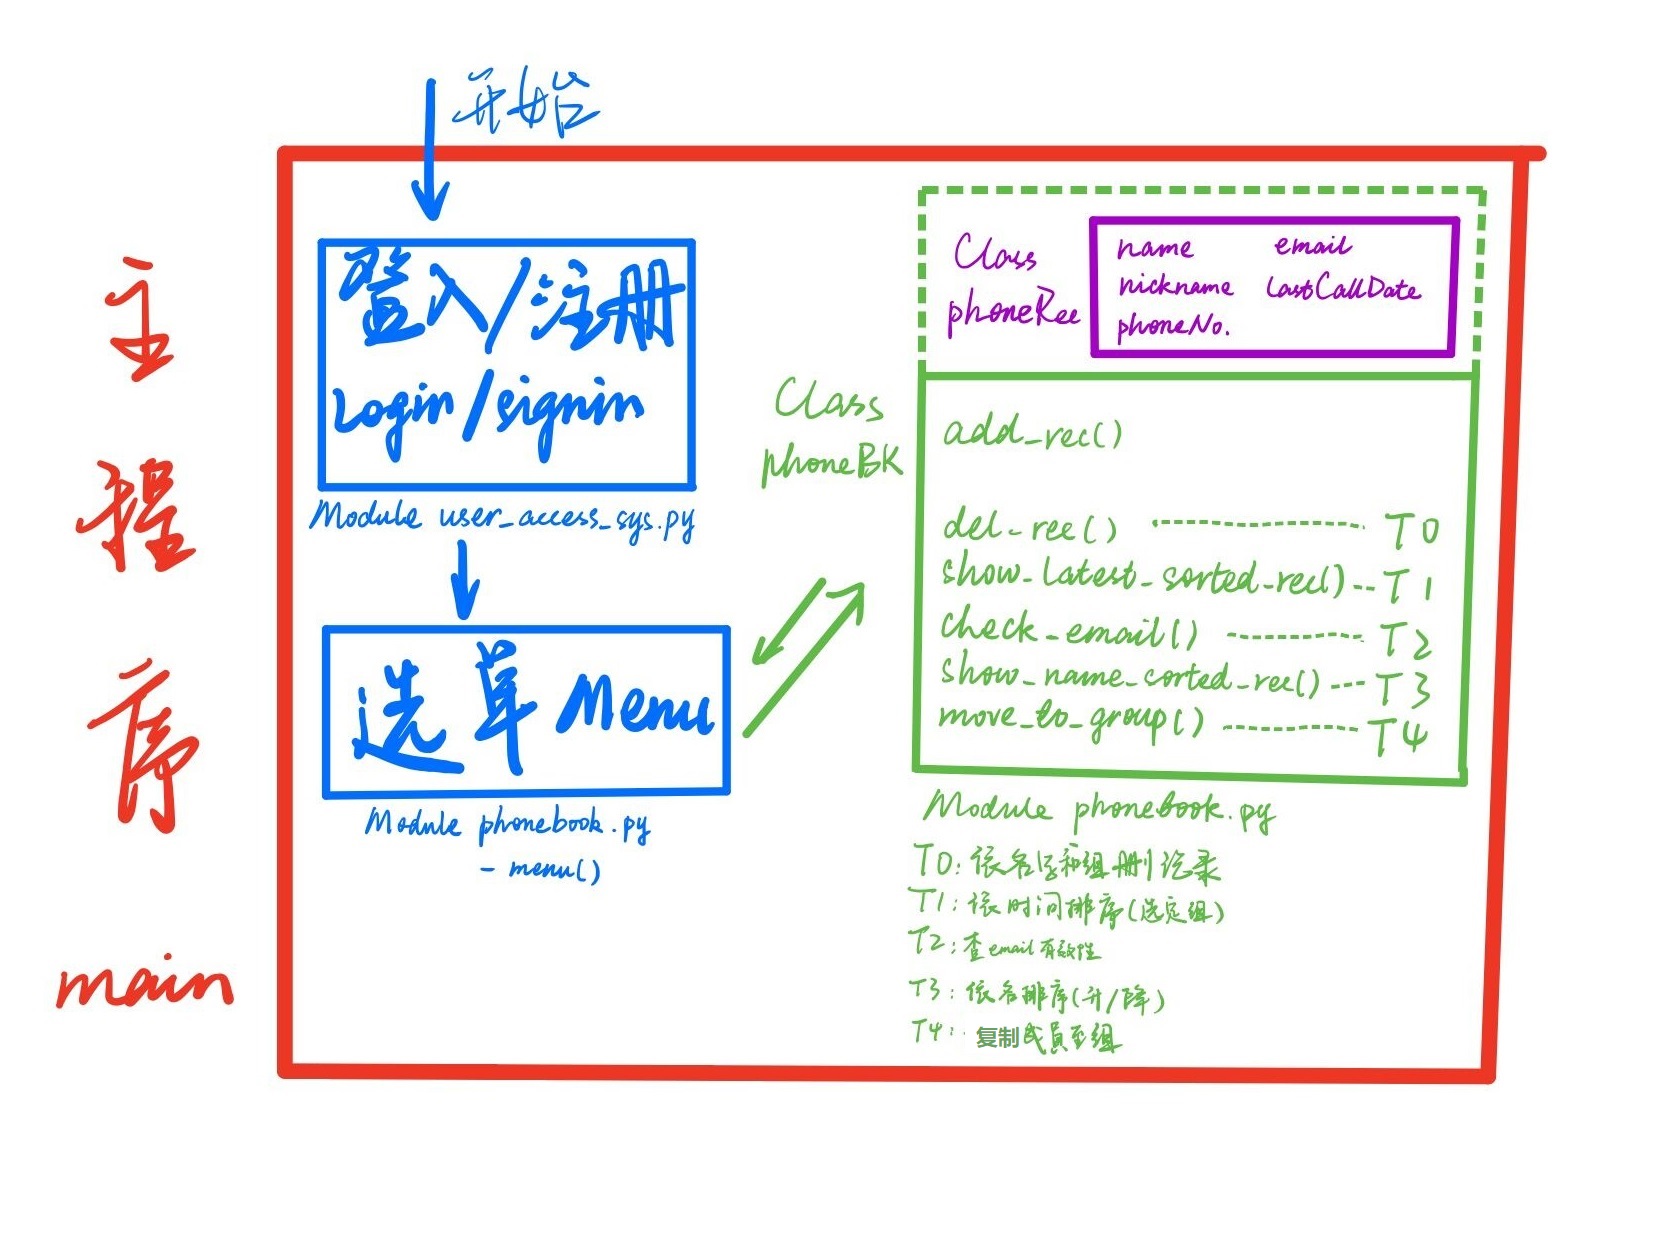 开始
主程序
main
登入/注册
Login/signin
Module user_access_sys.py
选单 Menu
Module phonebook.py
- menu()
Class
phoneBK
Class
phoneRec
name email
nickname LastCallDate
phoneNo.
add_rec()
del_rec() T0
show_latest_sorted_rec() T1
check_email() T2
show_name_sorted_rec() T3
move_to_group() T4
Module phonebook.py
T0: 依名字和组删记录
T1: 依时间排序(选定组)
T2: 查email有效性
T3: 依名排序(升/降)
T4: 复制成員至组